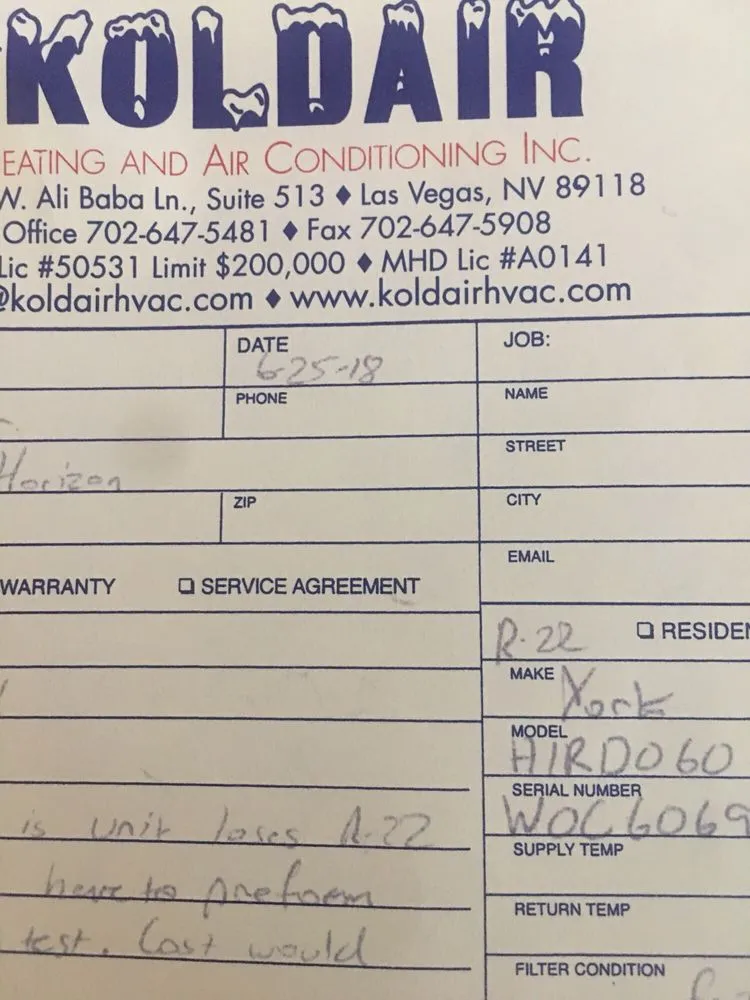 KOLDAIR
EATING AND AIR CONDITIONING INC.
W. Ali Baba Ln., Suite 513 ♦ Las Vegas, NV 89118
Office 702-647-5481 ♦ Fax 702-647-5908
Lic #50531 Limit $200,000 ♦ MHD Lic #A0141
@koldairhvac.com ♦ www.koldairhvac.com
DATE 6-25-18
JOB:
PHONE
NAME
Horizon
STREET
ZIP
CITY
EMAIL
WARRANTY ❏ SERVICE AGREEMENT
R-22 ❏ RESIDEN
MAKE York
MODEL H1RD060
SERIAL NUMBER WOC6069
is unit loses R-22
SUPPLY TEMP
have to preform
RETURN TEMP
test. Cost would
FILTER CONDITION